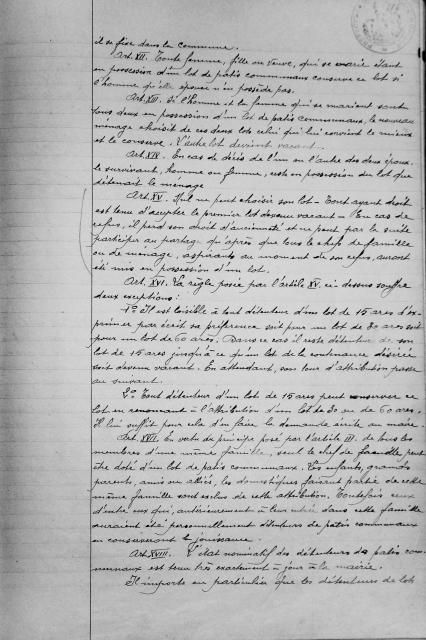 il se fixe dans la commune.
Art. XII. Toute femme, fille ou veuve, qui se marie étant
en possession d'un lot de patis communaux conserve ce lot si
l'homme qu'elle épouse n'en possède pas.
Art. XIII. Si l'homme et la femme qui se marient sont
tous deux en possession d'un lot de patis communaux, le nouveau
ménage choisit de ces deux lots celui qui lui convient le mieux
et le conserve. L'autre lot devient vacant.
Art. XIV. En cas de décès de l'un ou l'autre des deux époux,
le survivant, homme ou femme, reste en possession du lot que
détenait le ménage
Art. XV. Nul ne peut choisir son lot - Tout ayant droit
est tenu d'accepter le premier lot devenu vacant - En cas de
refus, il perd son droit d'ancienneté et ne peut par la suite
participer au partage qu'après que tous les chefs de famille
ou de ménage, aspirants au moment de son refus, auront
été mis en possession d'un lot.
Art. XVI. La règle posée par l'article XV ci-dessus souffre
deux exceptions:
1º Il est loisible à tout détenteur d'un lot de 15 ares d'ex-
primer par écrit sa préférence soit pour un lot de 30 ares soit
pour un lot de 60 ares. Dans ce cas il reste détenteur de son
lot de 15 ares jusqu'à ce qu'un lot de la contenance désirée
soit devenu vacant. En attendant, son tour d'attribution passe
au suivant.
2º Tout détenteur d'un lot de 15 ares peut conserver ce
lot en renonçant à l'attribution d'un lot de 30 ou de 60 ares.
Il lui suffit pour cela d'en faire la demande écrite au maire.
Art. XVII. En vertu du principe posé par l'article III. de tous les
membres d'une même famille, seul le chef de famille peut
être doté d'un lot de patis communaux. Les enfants, grands
parents, amis ou alliés, les domestiques faisant partie de cette
même famille sont exclus de cette attribution. Toutefois ceux
d'entre eux qui, antérieurement à leur entrée dans cette famille
auraient été personnellement détenteurs de patis communaux
en conserveront la jouissance.
Art. XVIII. L'état nominatif des détenteurs des patis com-
munaux est tenu très exactement à jour à la mairie.
Il importe en particulier que les détenteurs de lots